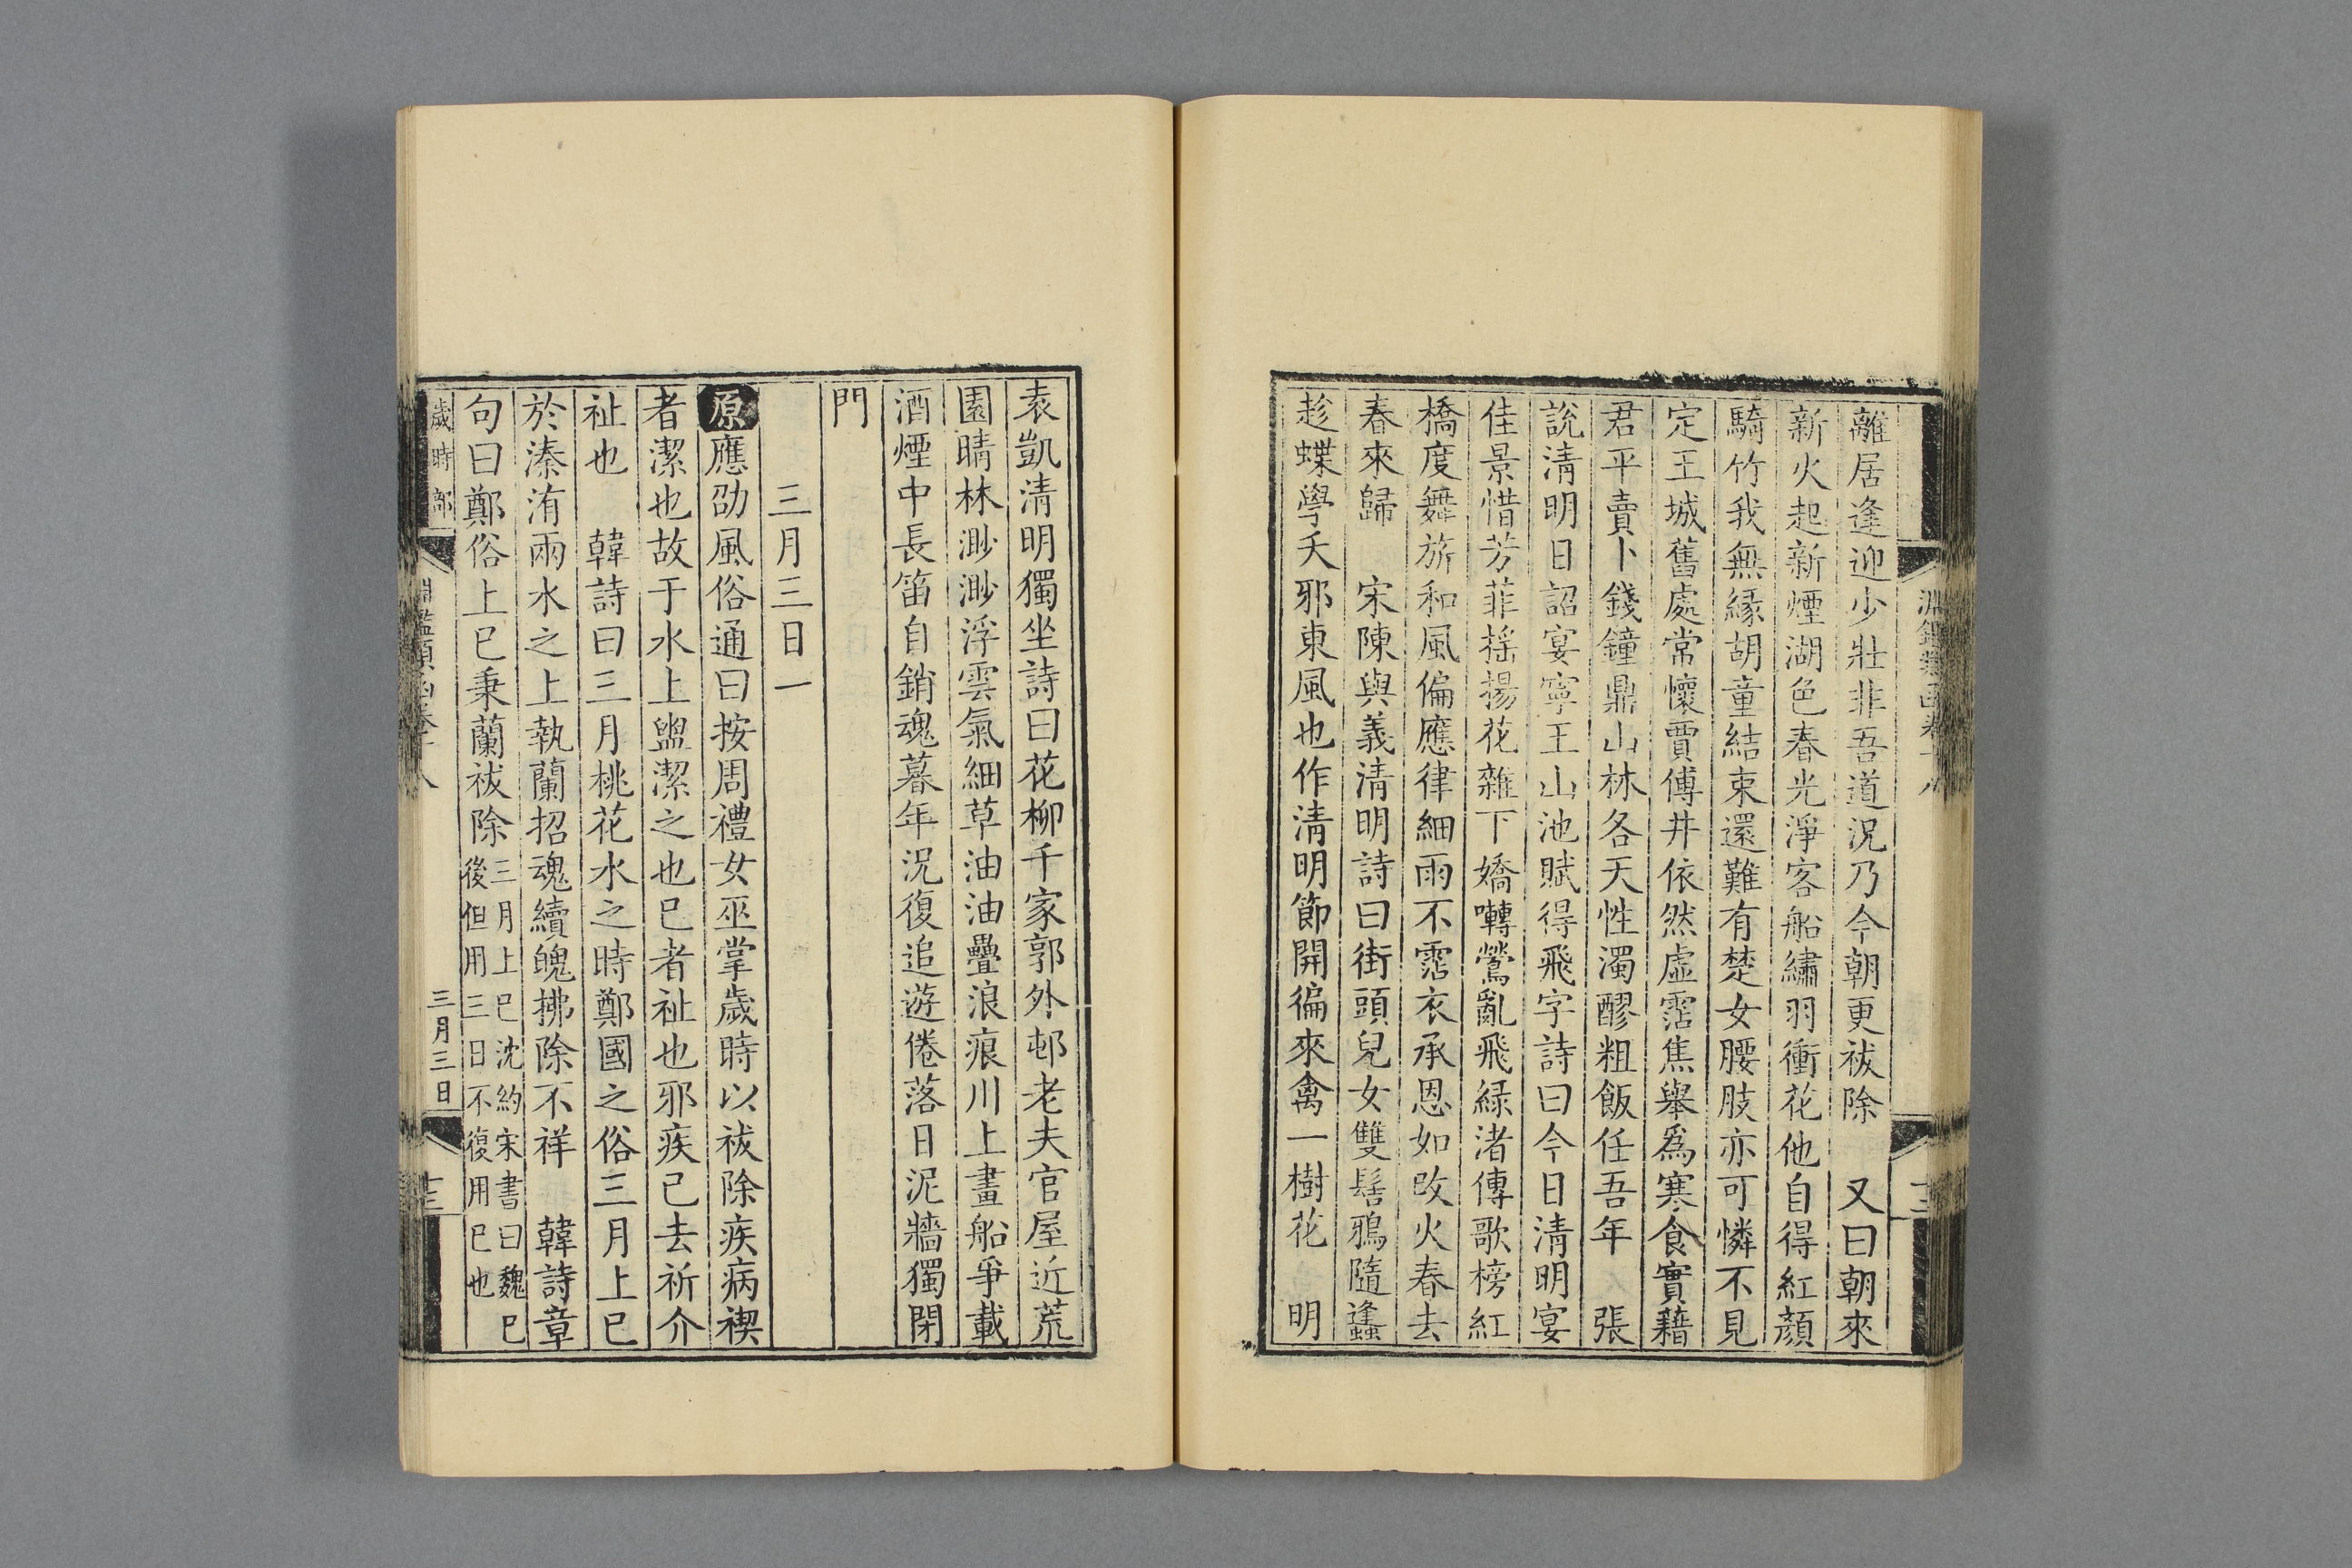 離居逢迎少壯非吾道況乃今朝更祓除　又曰朝來
新火起新煙湖色春光淨客船繡羽衝花他自得紅顏
騎竹我無緣胡童結束還難有楚女腰肢亦可憐不見
定王城舊處常懷賈傅井依然虛霑焦舉爲寒食實藉
君平賣卜錢鐘鼎山林各天性濁醪粗飯任吾年　張
說清明日詔宴寧王山池賦得飛字詩曰今日清明宴
佳景惜芳菲搖揚花雜下嬌囀鶯亂飛綠渚傳歌榜紅
橋度舞旂和風偏應律細雨不霑衣承恩如改火春去
春來歸　宋陳與義清明詩曰街頭兒女雙髻鴉隨蠭
趁蝶學夭邪東風也作清明節開徧來禽一樹花　明
淵鑑類函卷十八
袁凱清明獨坐詩曰花柳千家郭外邨老夫官屋近荒
園晴林渺渺浮雲氣細草油油疊浪痕川上畫船爭載
酒煙中長笛自銷魂暮年況復追遊倦落日泥牆獨閉
門
三月三日一
原應劭風俗通曰按周禮女巫掌歲時以祓除疾病禊
者潔也故于水上盥潔之也巳者祉也邪疾已去祈介
祉也　韓詩曰三月桃花水之時鄭國之俗三月上巳
於溱洧兩水之上執蘭招魂續魄拂除不祥　韓詩章
句曰鄭俗上巳秉蘭祓除三月上巳沈約宋書曰魏巳
後但用三日不復用巳也
歲時部　淵鑑類函卷十八　三月三日　十三